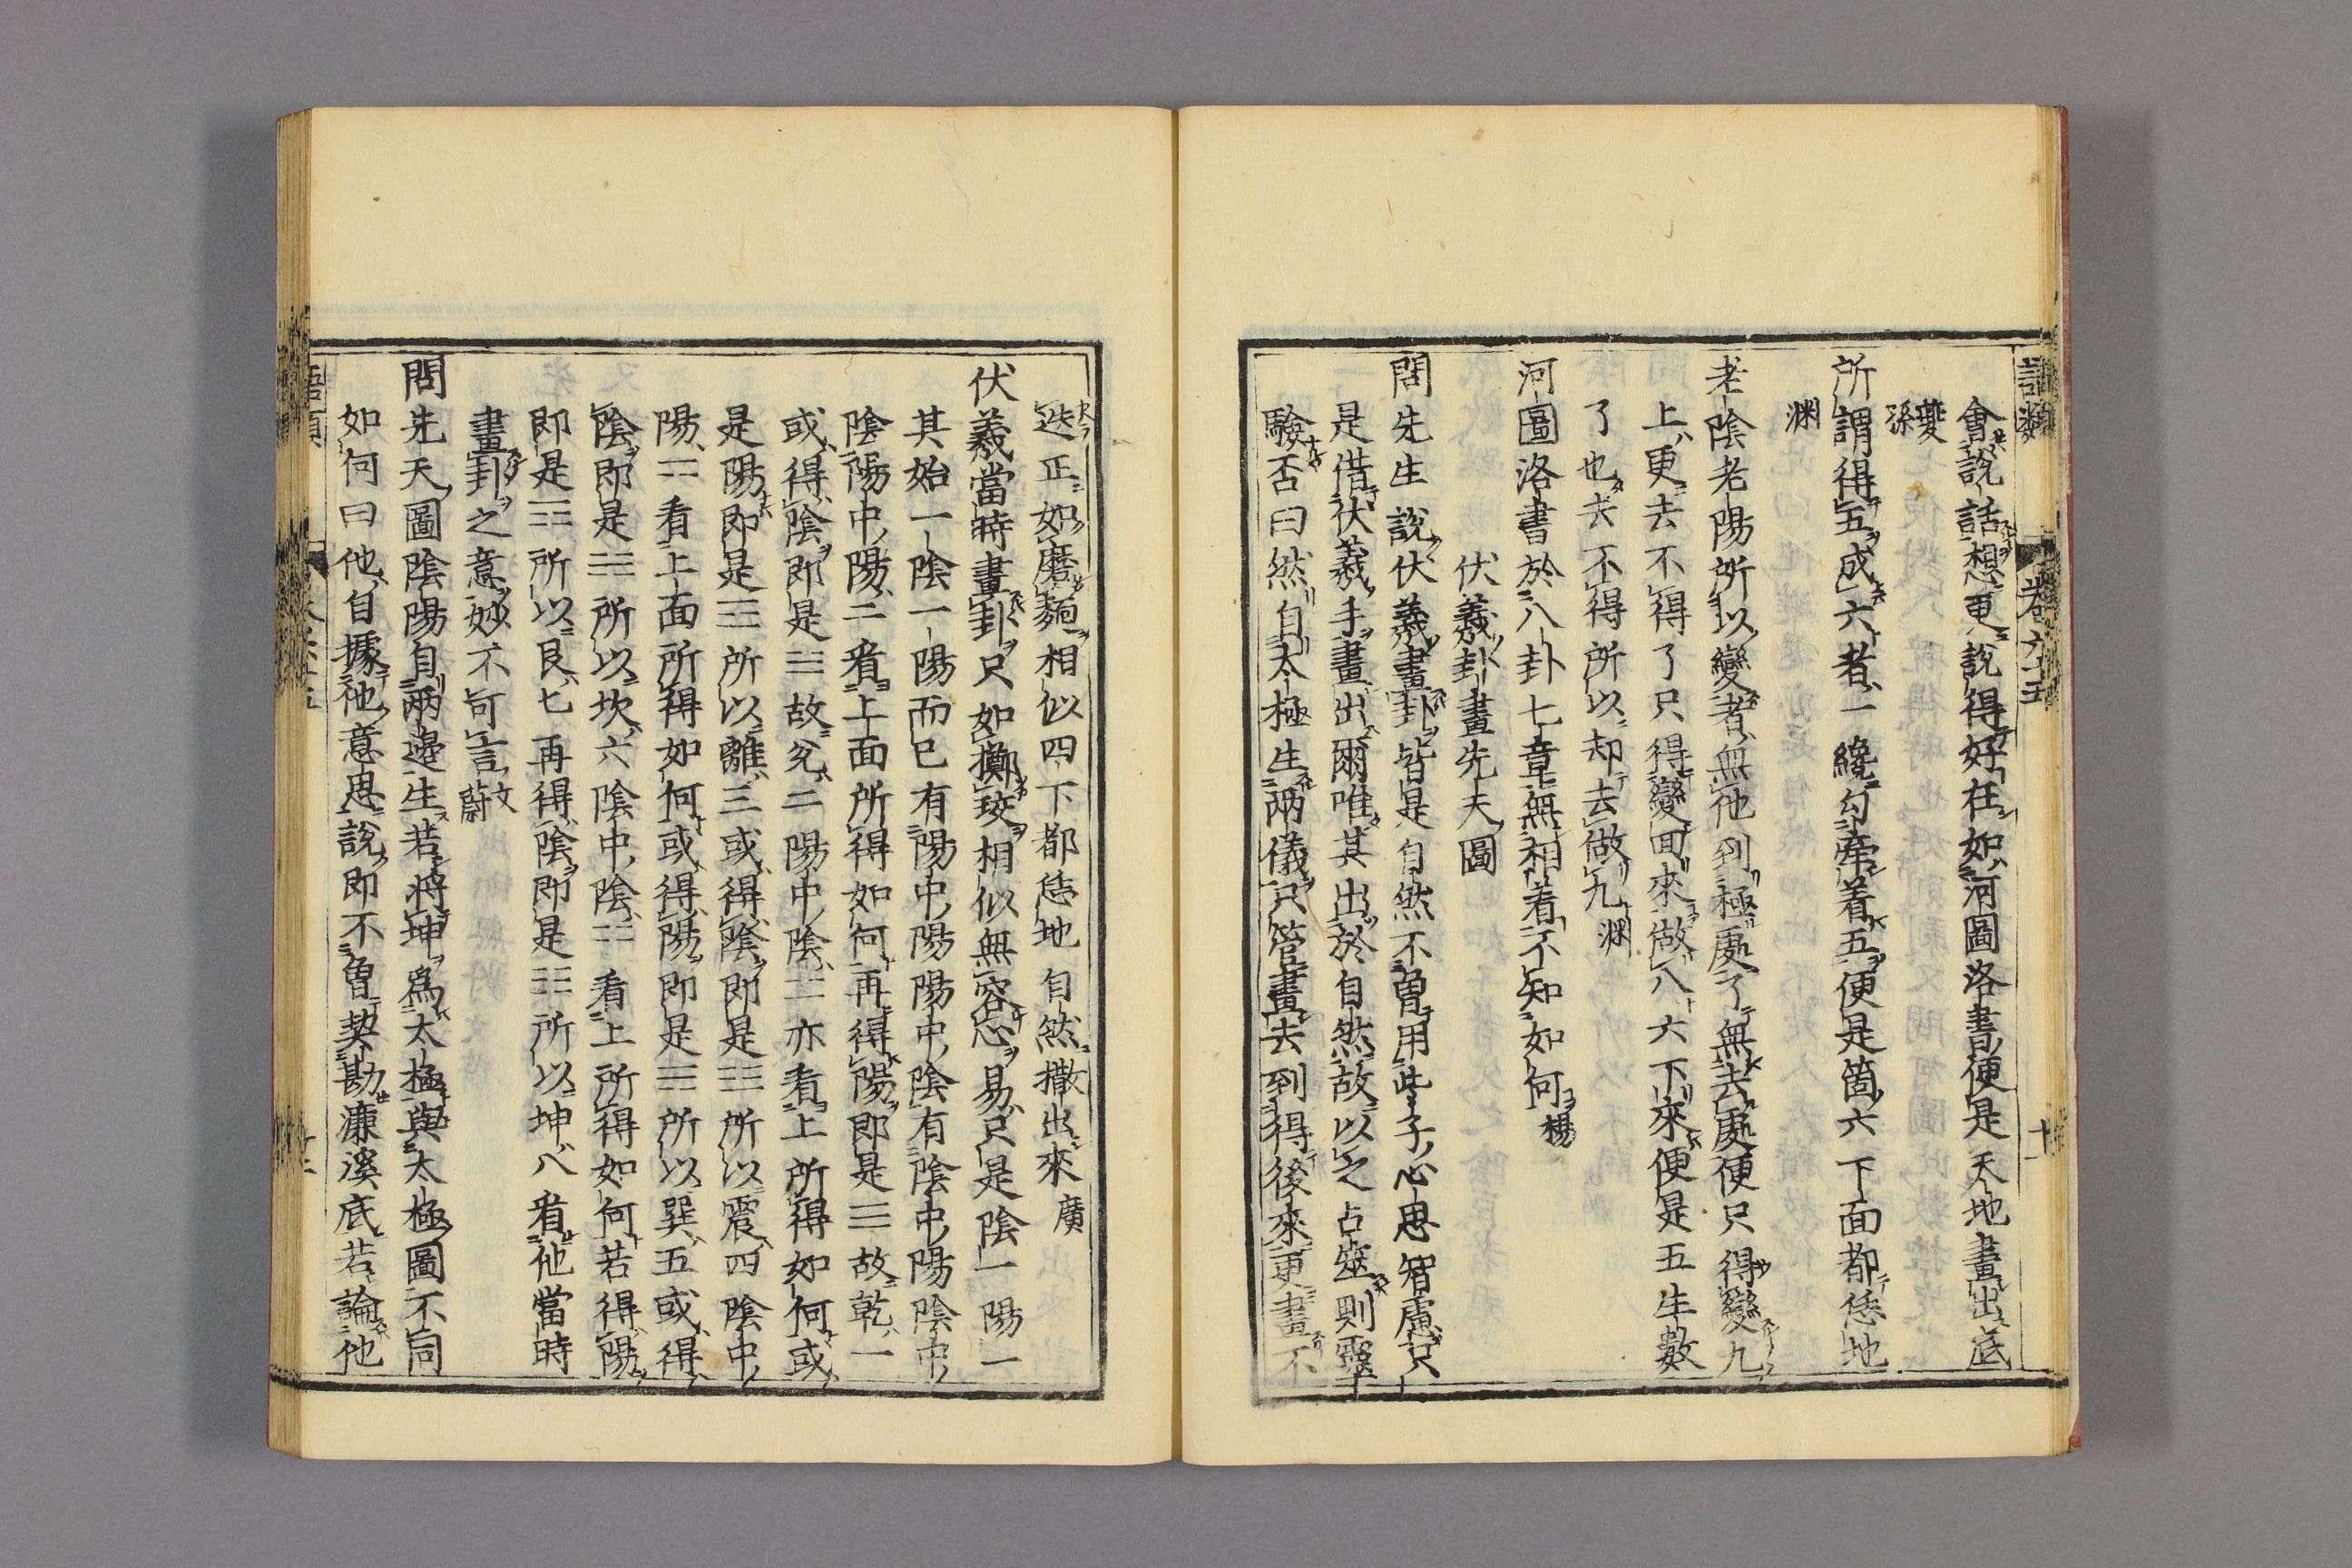 語類 卷六十五 十一
會說話想更說得好在如河圖洛書便是天地畫出底
夔孫
所謂得五成六者一纔勾牽着五便是箇六下面都恁地
淵
老陰老陽所以變者無他到極處了無去處便只得變九
上更去不得了只得變回來做八六下來便是五生數
了也去不得所以却去做九淵
河圖洛書於八卦七章無相着不知如何楊
伏羲卦畫先天圖
問先生說伏羲畫卦皆是自然不曾用些子心思智慮只
是借伏羲手畫出爾唯其出於自然故以之占筮則靈
驗否曰然自太極生兩儀只管畫去到得後來更畫不
迭正如磨麪相似四下都恁地自然撒出來廣
伏羲當時畫卦只如擲珓相似無容心易只是陰一陽一
其始一陰一陽而已有陽中陽陽中陰有陰中陽陰中
陰陽中陽⚌看上面所得如何再得陽即是☰故乾一
或得陰即是☱故兌二陽中陰⚍亦看上所得如何或
是陽即是☲所以離三或得陰即是☳所以震四陰中
陽⚎看上面所得如何或得陽即是☴所以巽五或得
陰即是☵所以坎六陰中陰⚏看上所得如何若得陽
即是☶所以艮七再得陰即是☷所以坤八看他當時
畫卦之意妙不可言文蔚
問先天圖陰陽自兩邊生若將坤爲太極與太極圖不同
如何曰他自據他意思說即不曾契勘濂溪底若論他